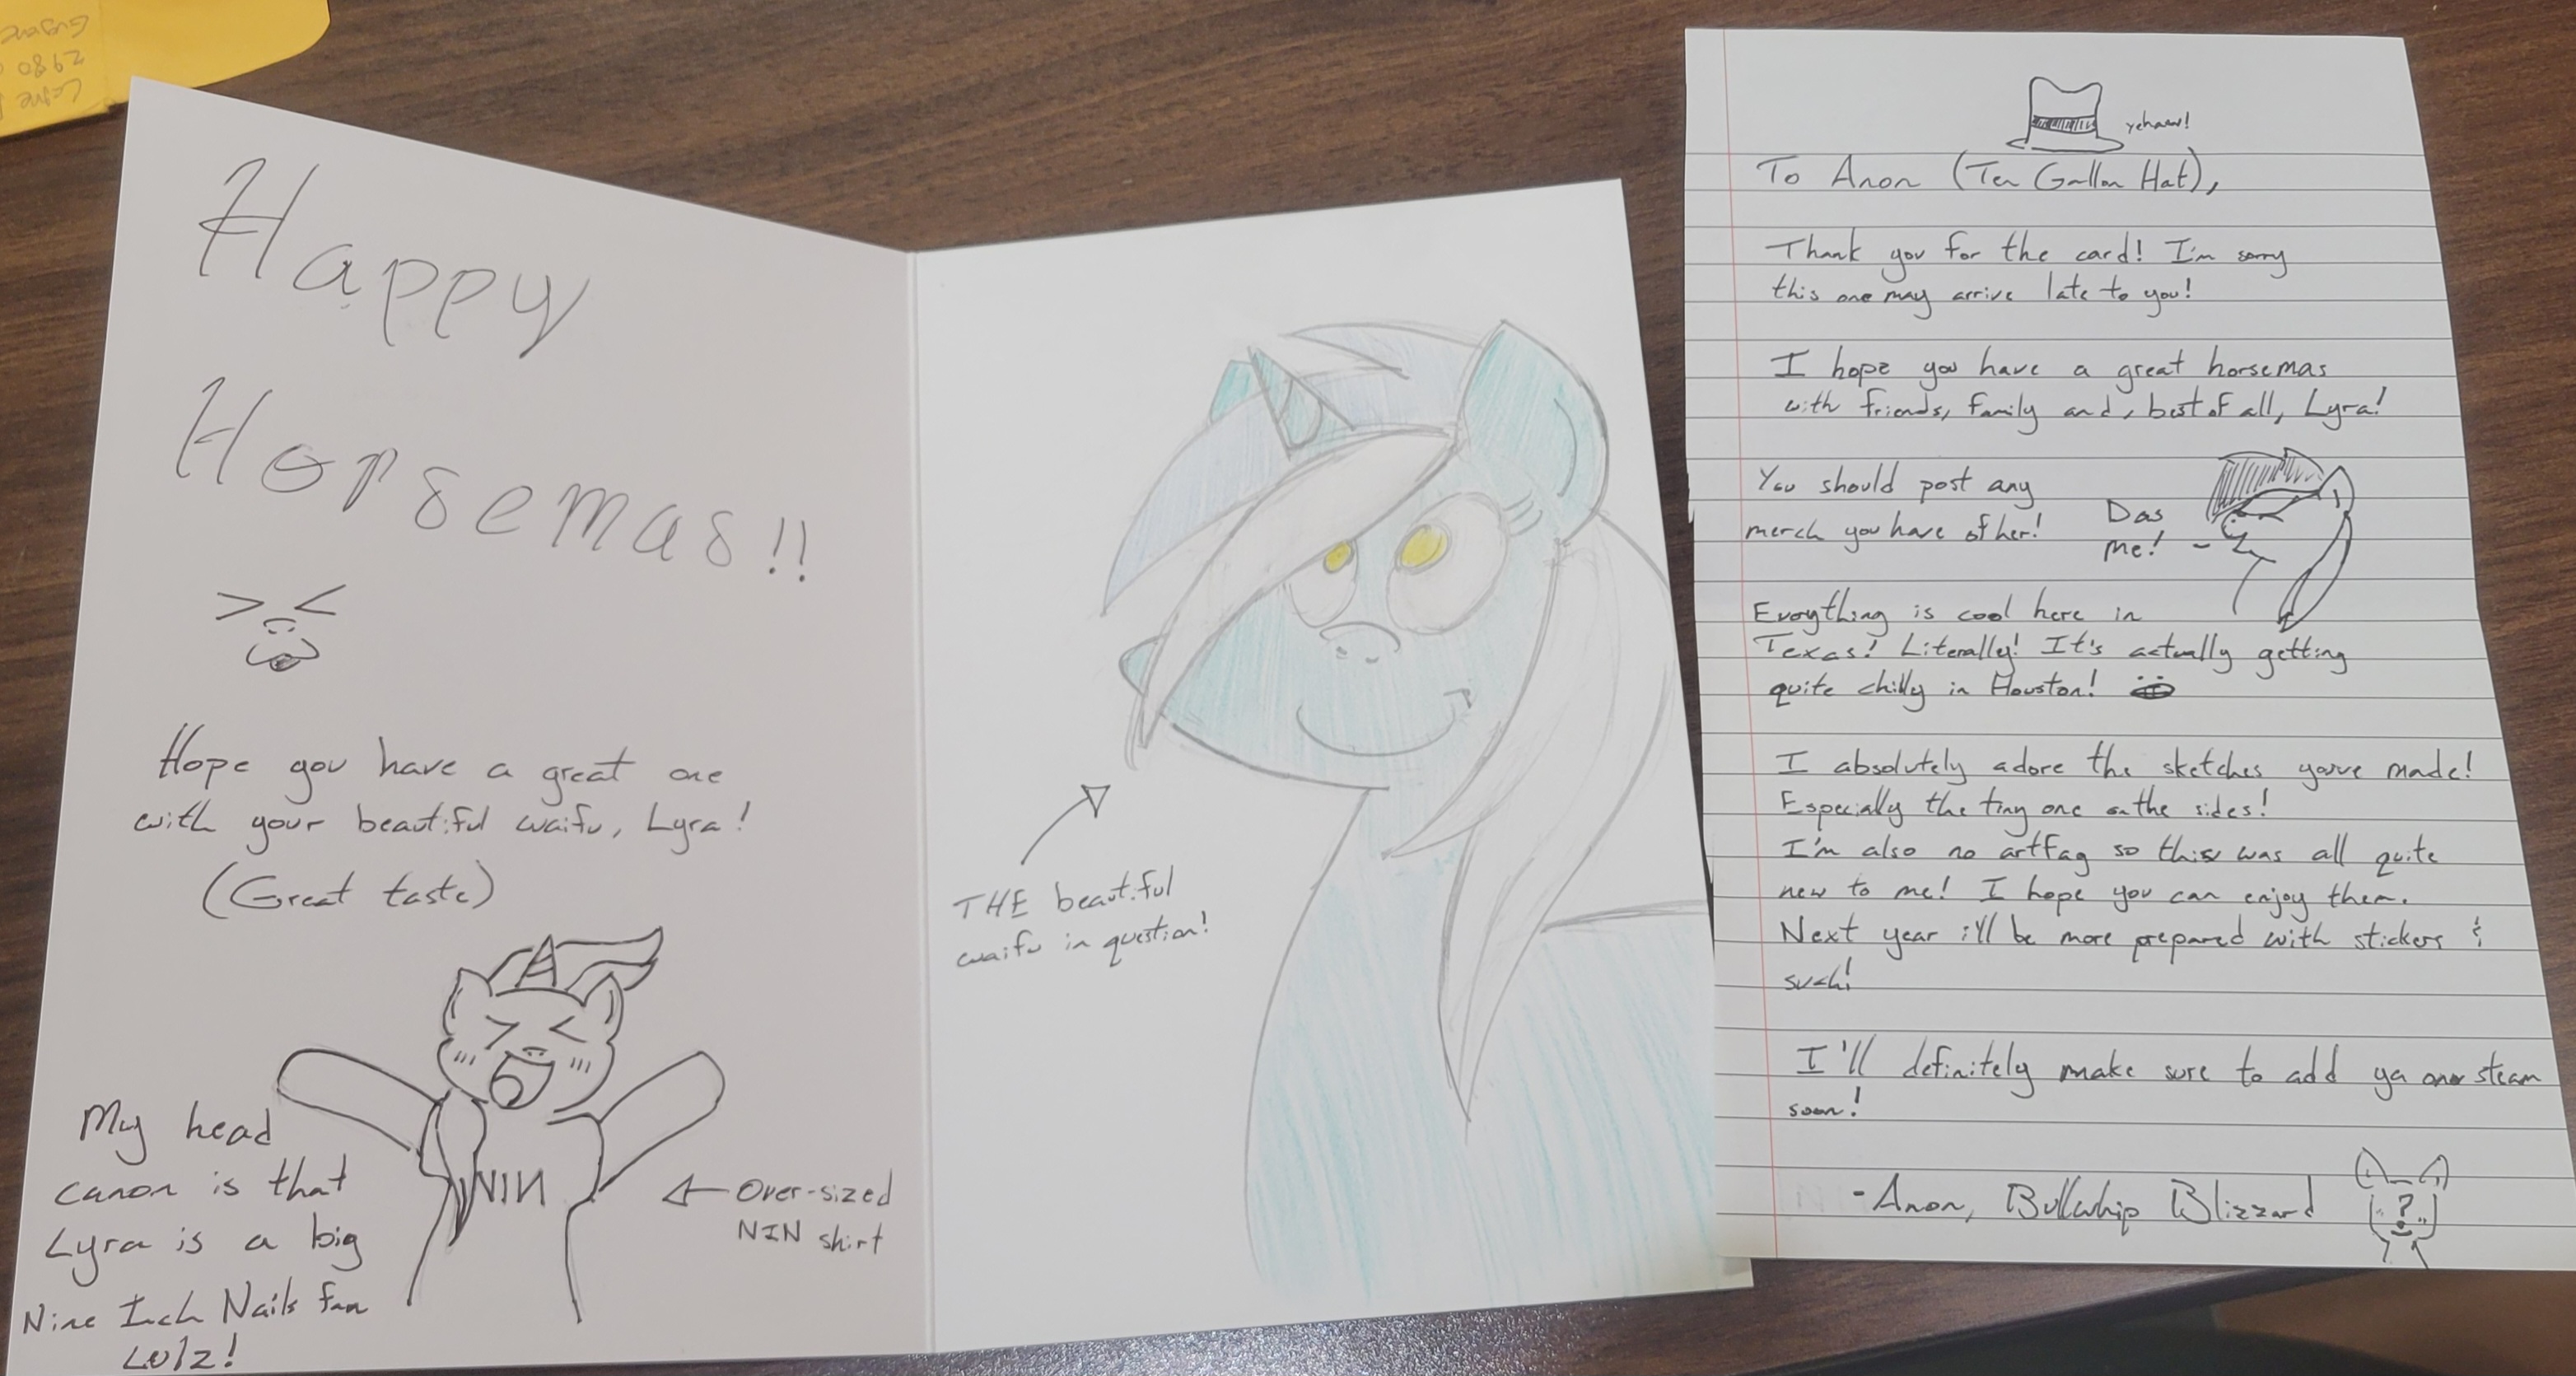 Happy
Horsemas!!
Hope you have a great one
with your beautiful waifu, Lyra!
(Great taste)
My head
canon is that
Lyra is a big
Nine Inch Nails fan
Lolz!
NIN
Over-sized
NIN shirt
THE beautiful
waifu in question!
yehaw!
To Anon (Ten Gallon Hat),
Thank you for the card! I'm sorry
this one may arrive late to you!
I hope you have a great horsemas
with friends, family and, best of all, Lyra!
You should post any
merch you have of her!
Das
me!
Everything is cool here in
Texas! Literally! It's actually getting
quite chilly in Houston!
I absolutely adore the sketches youve made!
Especially the tiny one on the sides!
I'm also no artfag so this was all quite
new to me! I hope you can enjoy them.
Next year i'll be more prepared with stickers &
such!
I'll definitely make sure to add ya on steam
soon!
-Anon, Bullwhip Blizzard
?
2980